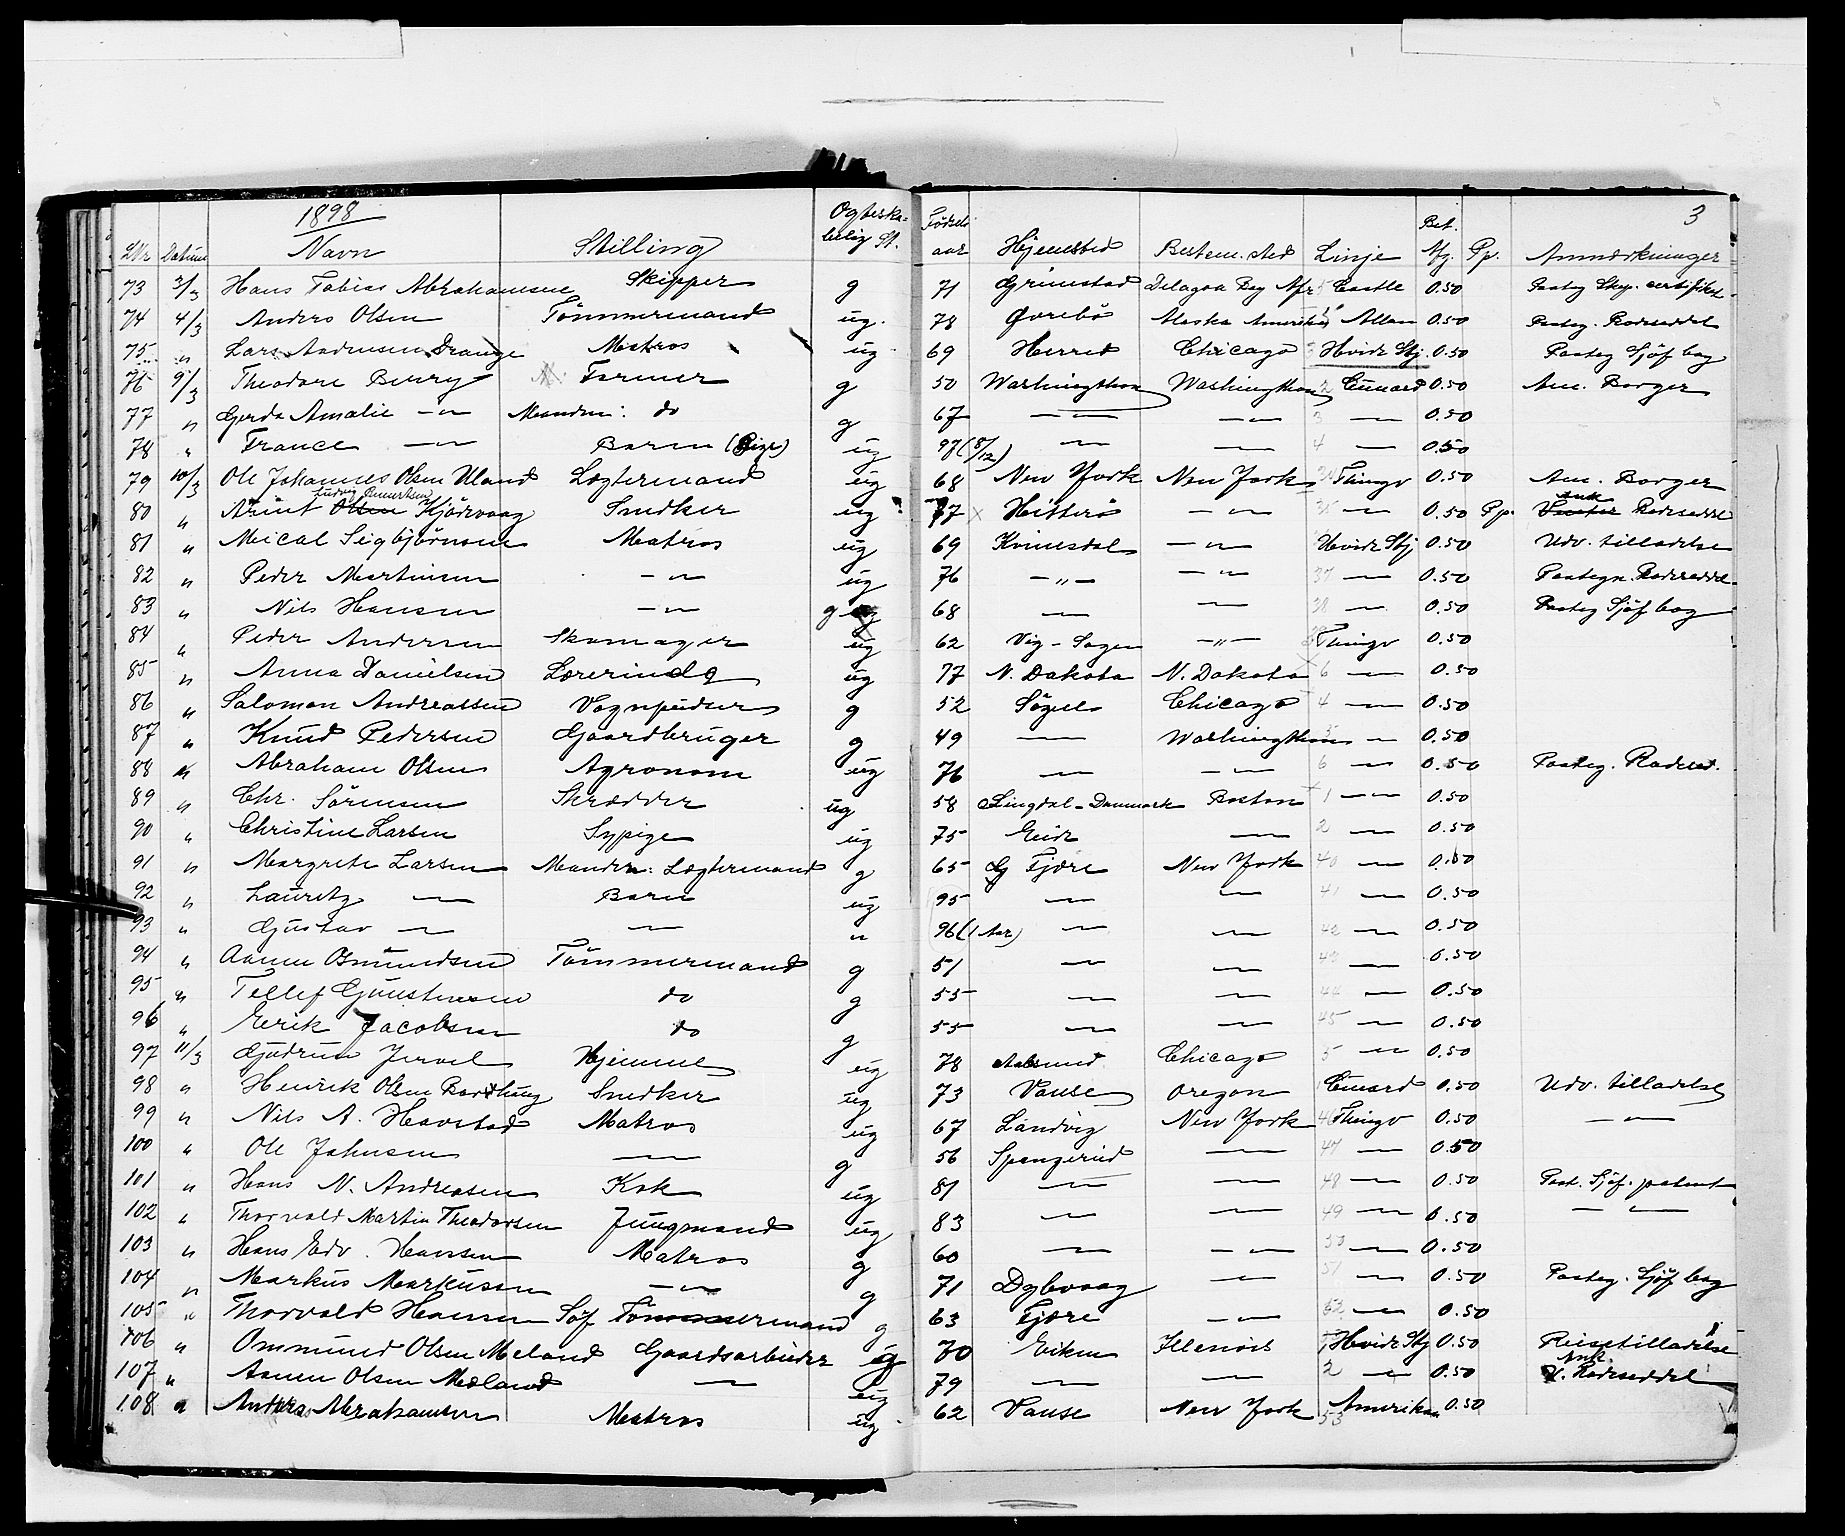 3
1898
Nr. Datum Navn Stilling Ægteska- belig St. Fødsels aar Hjemsted Bestem. sted Linje Bet. Afg. Pp. Anmærkninger
73 3/3 Hans Tobias Abrahamsen Skipper g 71 Grimstad Delagoa Bay Afr Castle 0.50
74 4/3 Anders Olsen Tömmermand ug. 78 Øvrebö Alaska Amerika Allan 0.50 Paateg. Rodeseddel
75 " Lars Andersen Drange Matros ug 69 Herred Chicago Hvide Stj. 0.50 Paateg Sjöf bog
76 9/3 Theodore Berry Farmer g 50 Washingthon Washingthon 2 Cunard 0.50 Am. Borger
77 " Gerda Amalie —"— Manden: do g 67 —"— —"— 3 —"— 0.50
78 " France —"— Barn (Pige) ug 97 (8/12) —"— —"— 4 —"— 0.50
79 10/3 Ole Johannes Olsen Uland Lægtermand ug 68 New York New York 34 Thingv 0.50 Am. Borger
80 " Arint Ludvig Olsen Kjörvaag Snedker ug 77 Hitterö —"— 35 —"— 0.50 Pp. Ank Rodeseddel
81 " Mical Seigbjörnsen Matros ug 69 Kvinesdal —"— Hvide Stj 0.50 Udv. tilladelse
82 " Peder Martinsen —"— ug 76 —"— —"— 37 —"— 0.50 Paategn. Rodeseddel
83 " Nils Hansen —"— g 68 —"— —"— 38 —"— 0.50 Paateg Sjöf bog
84 " Peder Andersen Skomager ug 62 Vig-Sogn —"— Thingv 0.50
85 " Anna Danielsen Lærerinde ug 77 N. Dakota N. Dakota 6 —"— 0.50
86 " Salomon Andreassen Vognpudser g 52 Sögne Chicago 4 —"— 0.50
87 " Knud Pedersen Gaardbruger g 49 —"— Washingthon —"— 0.50
88 " Abraham Olsen Agronom ug 76 —"— —"— 6 —"— 0.50 Paateg. Rodesed.
89 " Chr. Sörensen Skrædder ug 58 Lingdal-Danmark Boston 1 —"— 0.50
90 " Christine Larsen Sypige ug 75 Eide —"— 2 —"— 0.50
91 " Margrete Larsen Manden: Lægtermand g 65 Fjære New York 40 —"— 0.50
92 " Lauritz —"— Barn ug 95 —"— —"— 41 —"— 0.50
93 " Gustav —"— —"— " 96 (1 Aar) —"— —"— 42 —"— 0.50
94 " Aanen Osmundsen Tömmermand g 51 —"— —"— 43 —"— 0.50
95 " Tellef Gunstensen do g 55 —"— —"— 44 —"— 0.50
96 " Eerik Jacobsen do g 55 —"— —"— 45 —"— 0.50
97 11/3 Gudrun Jervel Hjemme ug 78 Aalesund Chicago 5 —"— 0.50
98 " Henrik Olsen Snedker ug 73 Vanse Oregon Cunard 0.50 Udv. tilladelse
99 " Nils A. Havstad Matros ug 67 Landvig New York 46 Thingv 0.50 —"—
100 " Ole Johnsen —"— g 56 Spangereid —"— 47 —"— 0.50
101 " Hans N. Andreasen Kok ug 81 —"— —"— 48 —"— 0.50 Paat. Sjöf. patent
102 " Thorvald Martin Theodorsen Jungmand ug 83 —"— —"— 49 —"— 0.50 —"—
103 " Hans Edv. Hansen Matros g 60 —"— —"— 50 —"— 0.50
104 " Markus Markussen —"— g 71 Dybvaag —"— 51 —"— 0.50 Paateg. Sjöf bog
105 " Thorvald Hansen Söf Tömmermand g 63 Fjære —"— 52 —"— 0.50
106 " Ommund Olsen Meland Gaardsarbeider ug 70 Eiken Illenois Hvide Stj 0.50 Reisetilladelse
107 " Aanen Olsen Medland —"— ug 79 —"— —"— 2 —"— 0.50 Ank. Rodeseddel
108 " Anders Abrahamsen Matros ug 62 Vanse New York 53 Amerikan 0.50